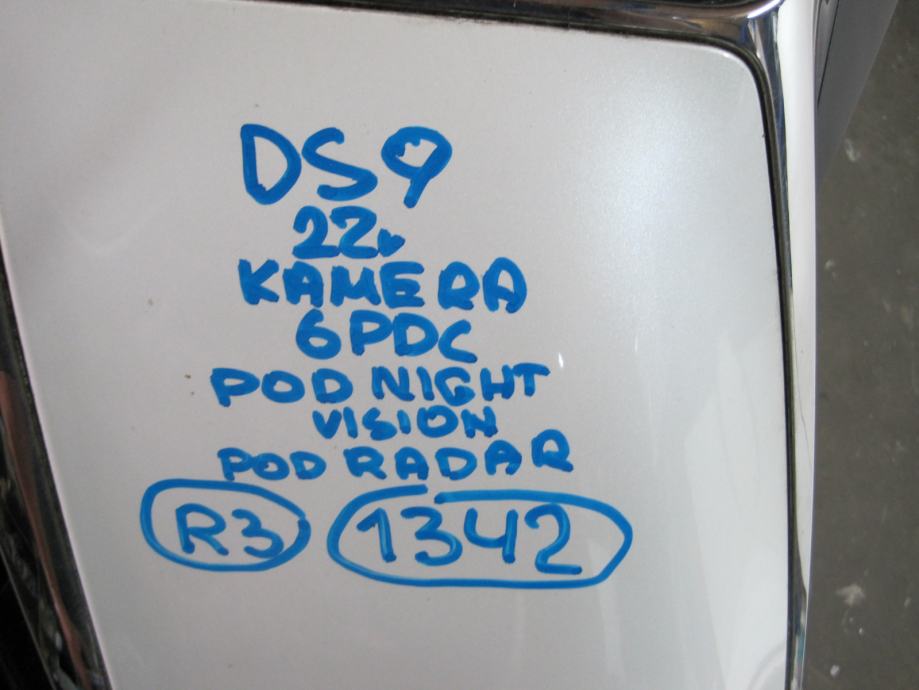 DS9
22r
KAMERA
6PDC
POD NIGHT
VISION
POD RADAR
R3 1342